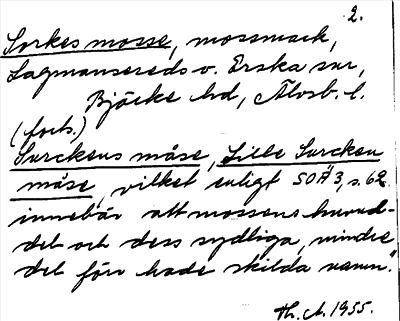 2.
Sorkes mosse, mossmark,
Lagmansereds v. Erska snr,
Bjäcke hd, Älvsb. l.
(forts.)
Surckens måse, Lille Surcken
måse, vilket enligt SOÄ 3, s. 62
innebär att mossens huvud-
del och dess sydliga, mindre
del förr hade skilda namn."
Th. A. 1955.